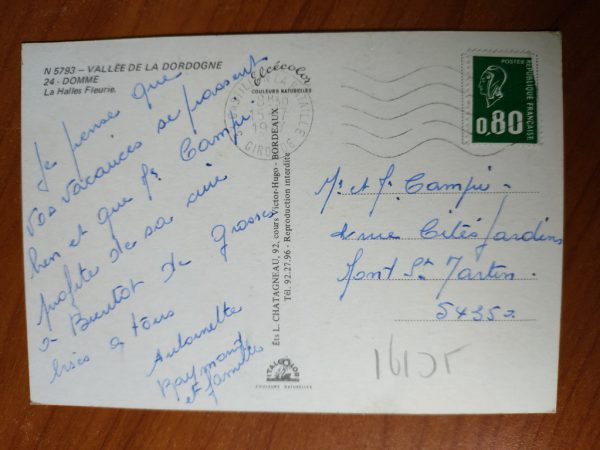 N 5793 – VALLÉE DE LA DORDOGNE
24 - DOMME
La Halles Fleurie.
Elcécolor
COULEURS NATURELLES
Je pense que
vos vacances se passent
bien et que Mr Campi
profite de sa
à Bientôt de grosses
bises à tous
Antoinette
Raymond
et famille
GIRONDE
Éts L. CHATAGNEAU, 92, cours Victor-Hugo - BORDEAUX
Tél. 92.27.96 - Reproduction interdite
ITALCOLOR
COULEURS NATURELLES
POSTES
RÉPUBLIQUE FRANÇAISE
0,80
Mr et Me Campi
rue Cités Jardins
Mont St Martin
54350